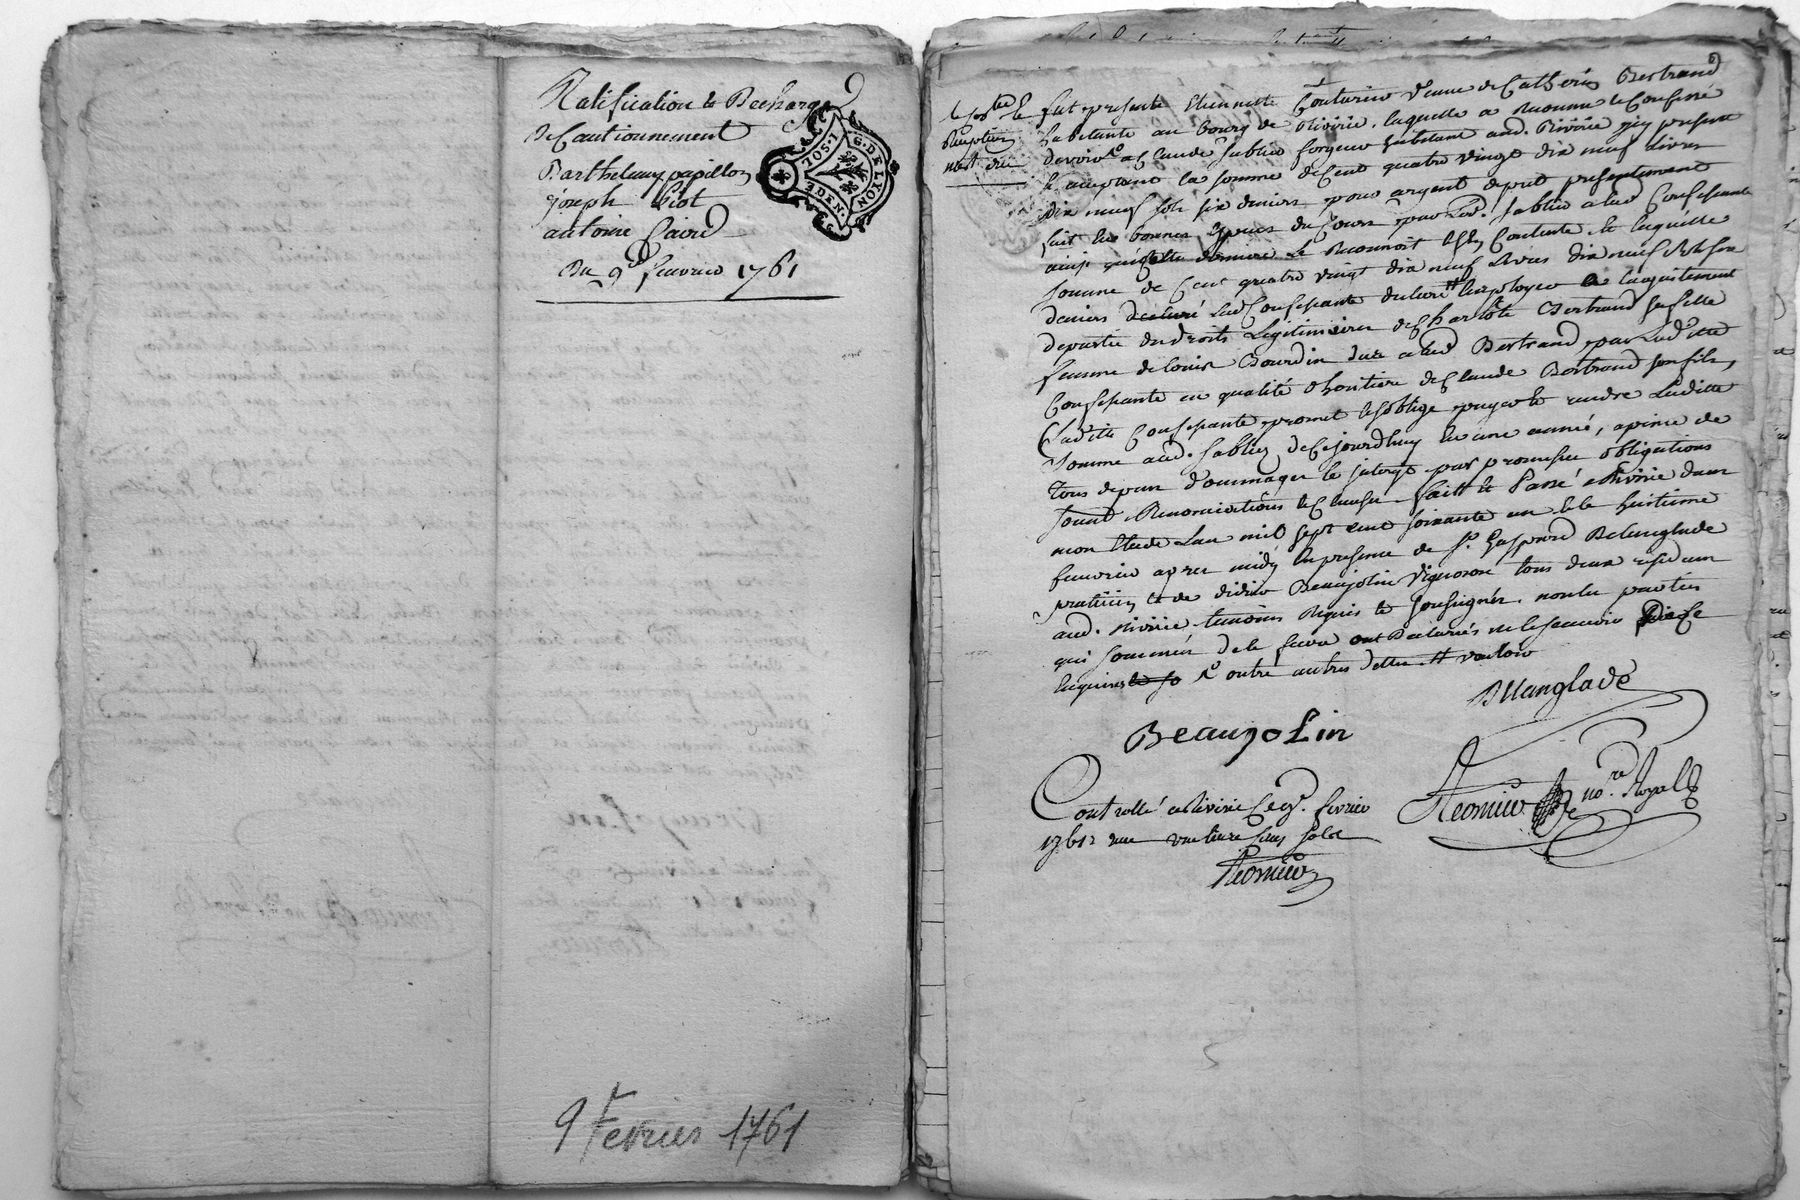 Ratification & Decharge
de Cautionnement
Barthelemy papillon
joseph Viot
antoine Caire
Du 9e fevrier 1761
G. DE LYON
1. SOL
EDEN.
9 Fevrier 1761
fut presente Etiennette Couturier veuve de Catherin Bertrand
habitante au bourg de Rivirie, laquelle a Reconnu & Confessé
devoir a Claude Sablier forgeur habitant aud. Rivirie icy present
& acceptant la somme de Cent quatre vingt dix neuf livres
dix neuf sols six deniers pour argent depret presentement
fait en bonnes especes du Cours par led. Sablier a lad Confessante
ainsi quicelle derniere le Reconnoit Est Contente, & laquelle
somme de Cent quatre vingt dix neuf Livres dix neuf sols six
deniers declaré Lad Confessante vouloir Employer a lacquittement
de partie des droits Legitimaires de Charlote Bertrand sa fille
femme de louis Bourdin due a lad Bertrand par Ladite
Confessante en qualité dheritiere de Claude Bertrand son fils,
Ladite Confessante promet & soblige payer & rendre Ladite
somme aud. Sablier de Cejourdhuy En une année, a peine de
tous depens dommages & interets par promesses obligations
soumis. Renonciations & Clauses. fait & Passé a Rivirie dans
mon Etude Lan mil sept cent soixante un & le huitieme
fevrier apres midy En presence de Sr. Gaspard Bellanglade
praticien & de didier Beaujolin Vigneron tous deux residant
aud. Rivirie temoins Requis & soussignés. non les parties
qui sommés de le faire ont Declarés ne le scavoir de Ce
Enquises outre autres dettes
Bllanglade
Beaujolin
Controllé a Rivirie Ce 9e. fevrier
1761 no.re Royal